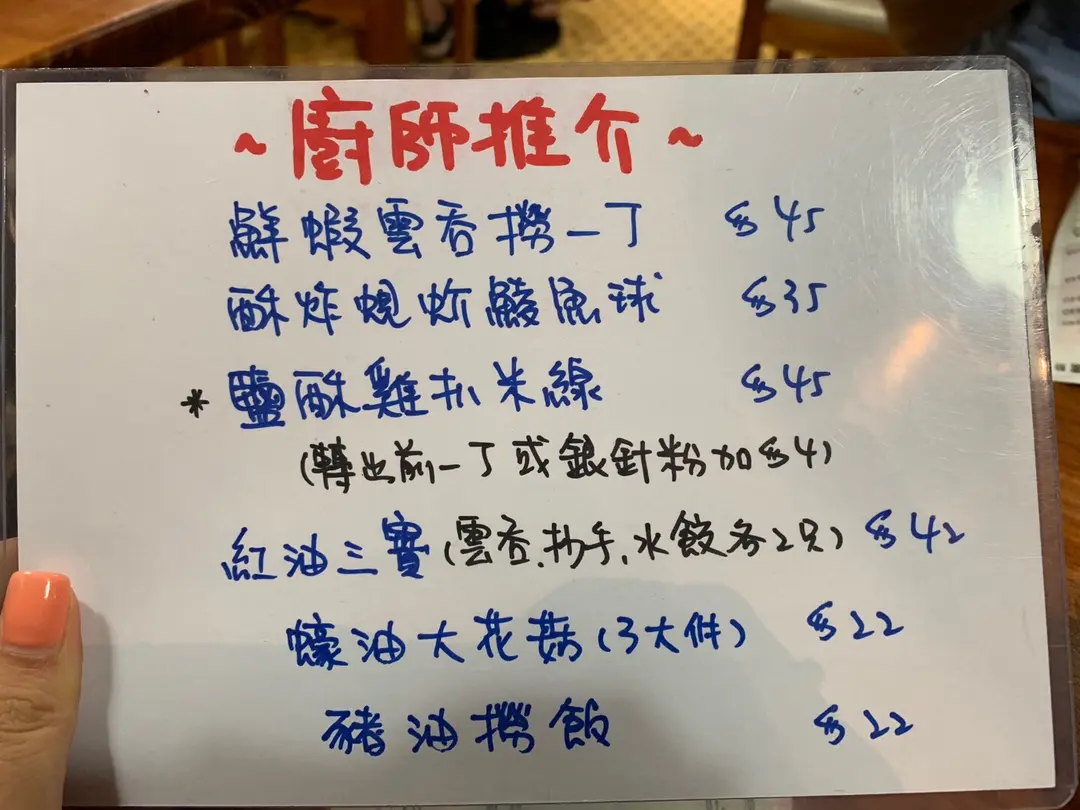 ~廚師推介~
鮮蝦雲吞撈一丁 $45
酥炸蜆蚧鯪魚球 $35
*鹽酥雞扒米線 $45
(轉出前一丁或銀針粉加$4)
紅油三寶(雲吞.抄手.水餃各2只) $42
蠔油大花菇(3大件) $22
豬油撈飯 $22